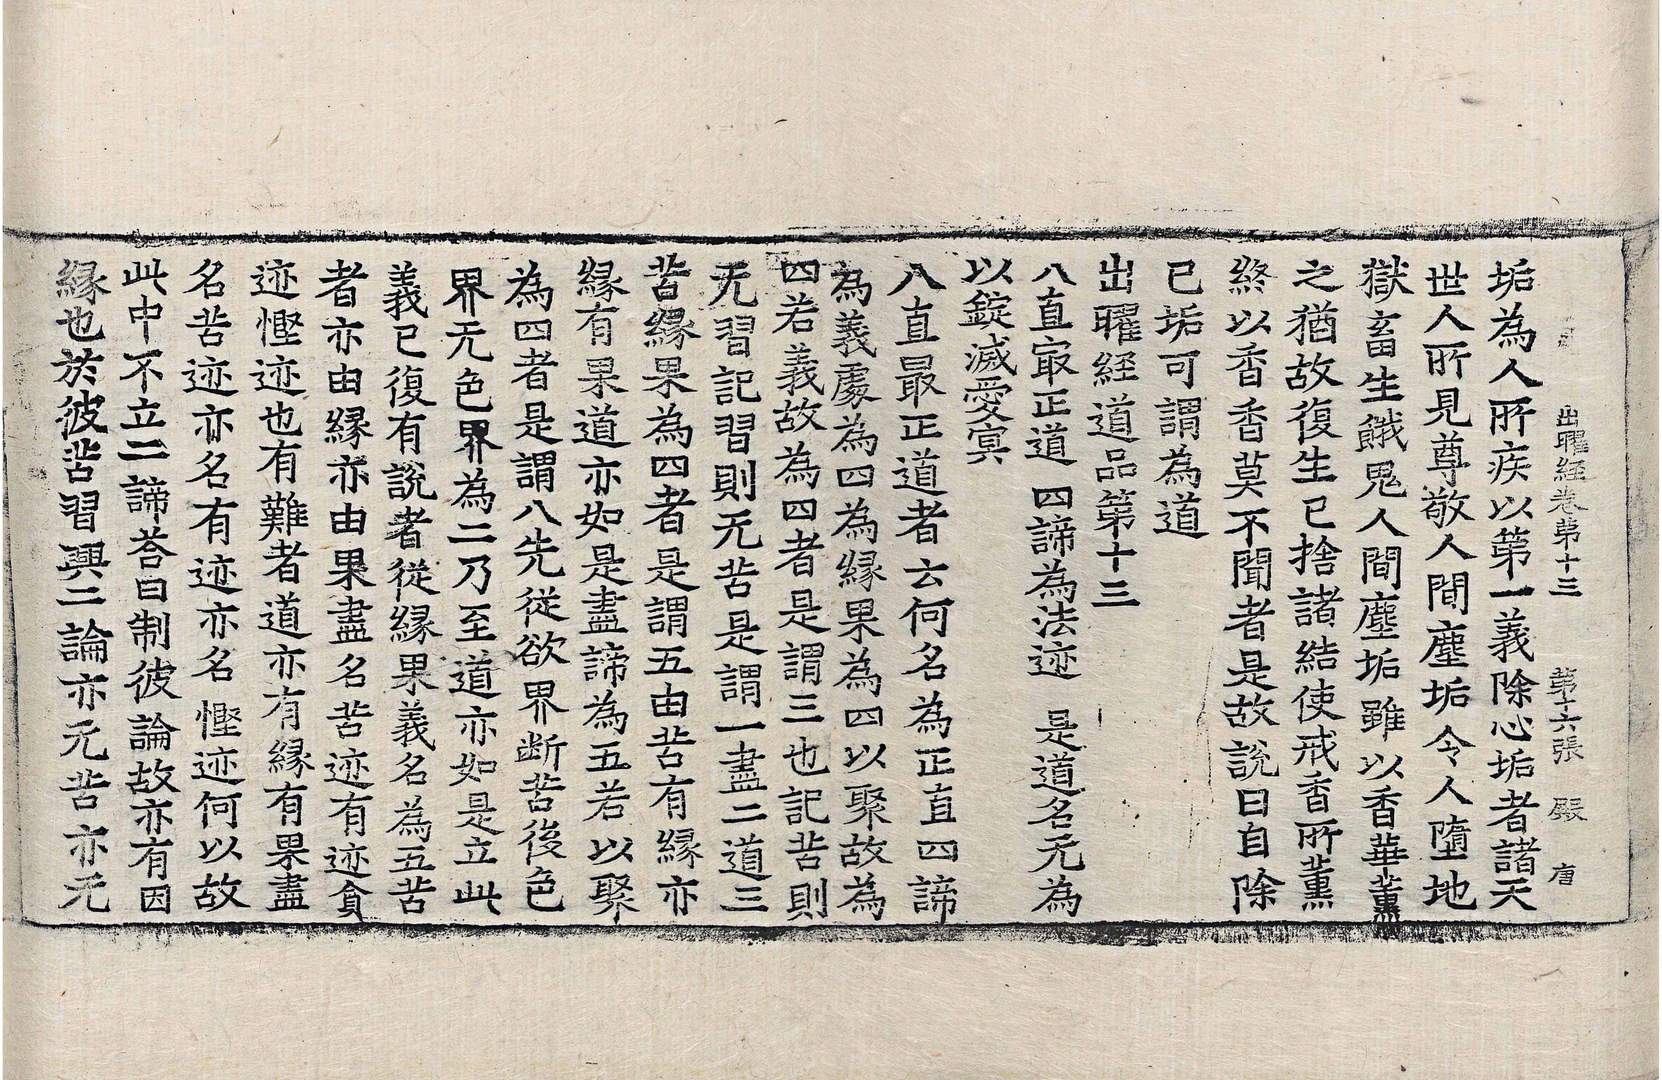 出曜経卷第十三　第十六張　殿　唐
垢為人所疾以第一義除心垢者諸天
世人所見尊敬人間塵垢令人墮地
獄畜生餓鬼人間塵垢雖以香華薰
之猶故復生已捨諸結使戒香所薰
終以香香莫不聞者是故說曰自除
已垢可謂為道
出曜経道品第十三
八直㝡正道　四諦為法迹　是道名无為
以錠滅愛冥
八直最正道者云何名為正直四諦
為義處為四為緣果為四以聚故為
四若義故為四者是謂三也記苦則
无習記習則无苦是謂一盡二道三
苦緣果為四者是謂五由苦有緣亦
緣有果道亦如是盡諦為五若以聚
為四者是謂八先從欲界断苦後色
界无色界為二乃至道亦如是立此
義已復有說者從緣果義名為五苦
者亦由緣亦由果盡名苦迹有迹貪
迹慳迹也有難者道亦有緣有果盡
名苦迹亦名有迹亦名慳迹何以故
此中不立二諦荅曰制彼論故亦有因
緣也於彼苦習興二論亦无苦亦无